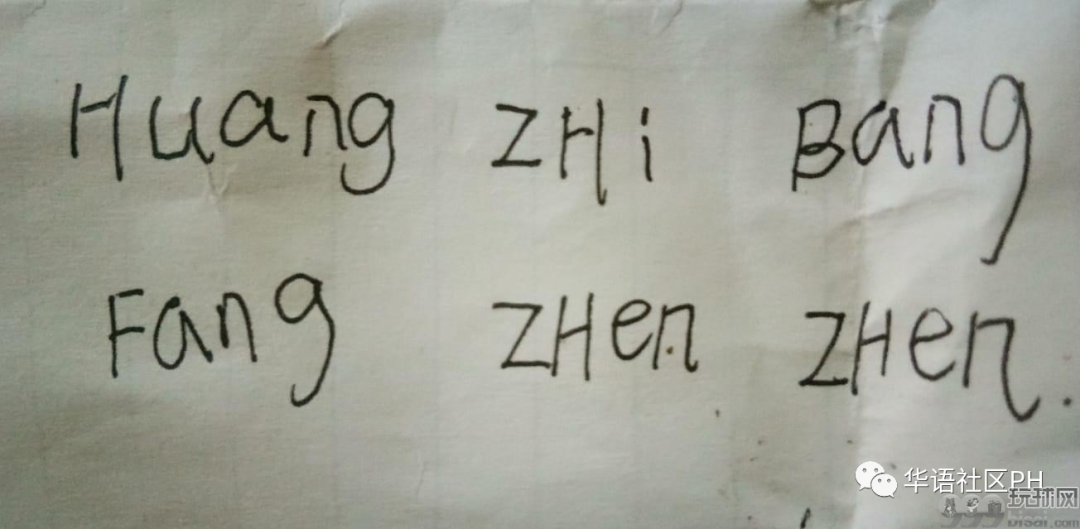 Huang ZHi Bang
Fang ZHen ZHen.
华语社区PH
玩球网